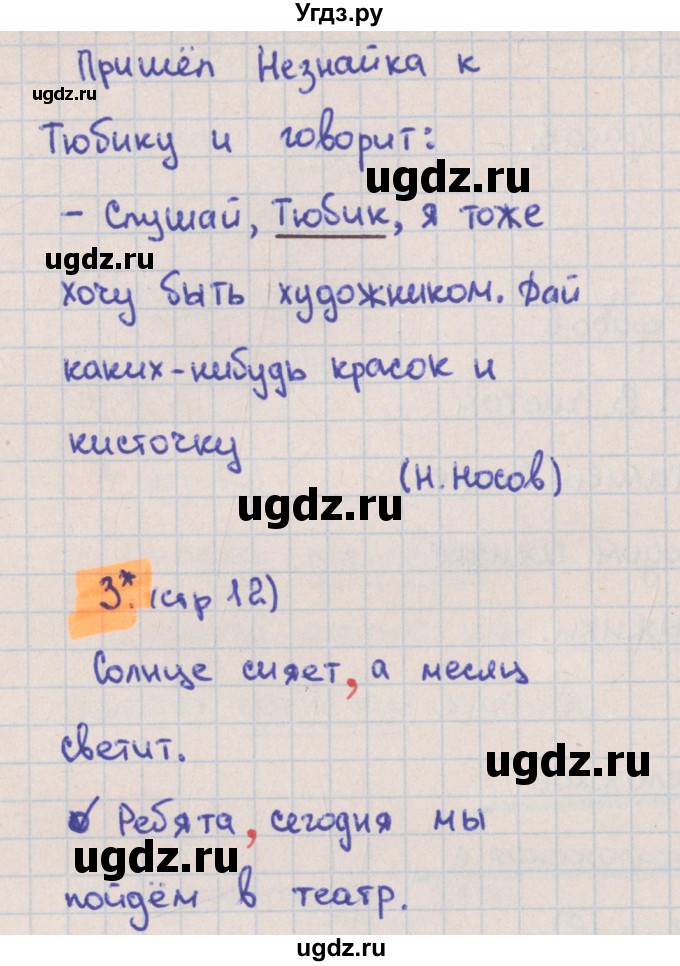 Угдз.ру
Пришёл Незнайка к
ugdz.ru
Тюбику и говорит:
ugdz.ru
- Слушай, Тюбик, я тоже
ugdz.ru
хочу быть художником. Дай
каких-нибудь красок и
ugdz.ru
кисточку
(Н. Носов)
ugdz.ru
3*. (стр 12)
Солнце сияет, а месяц
светит.
ugdz.ru
Ребята, сегодня мы
ugdz.ru
пойдём в театр.
ugdz.ru